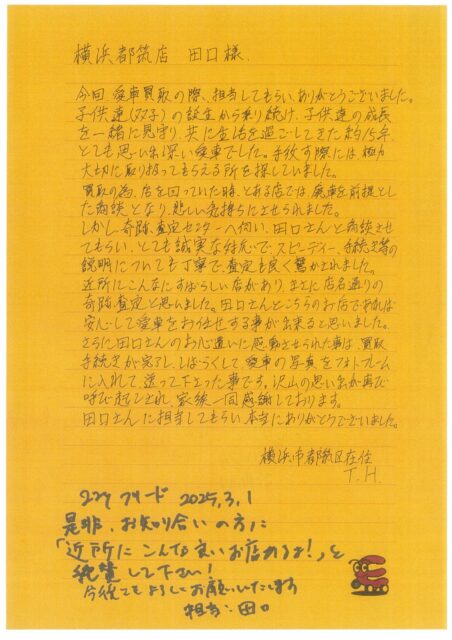 横浜都筑店　田口様
今回、愛車買取の際、担当してもらい、ありがとうございました。
子供達(双子)の誕生から乗り続け、子供達の成長
を一緒に見守り、共に生活を過ごしてきた約15年
とても思い出深い愛車でした。手放す際には、極力
大切に取り扱ってもらえる所を探していました。
買取の為、店を回っていた時、とある店では、廃車を前提とし
た商談となり、悲しい気持ちにさせられました。
しかし奇跡、査定センターへ伺い、田口さんと商談させ
てもらい、とても誠実な対応で、スピーディー、手続き等の
説明についても丁寧で、査定も良く驚かされました。
近所にこんなにすばらしい店があり、まさに店名通りの
奇跡、査定と思いました。田口さんとこちらのお店であれば
安心して愛車をお任せする事が出来ると思いました。
さらに田口さんのお心遣いに感動させられた事は、買取
手続きが完了し、しばらくして、愛車の写真をフォトフレーム
に入れて、送って下さった事です。沢山の思い出が再び
呼び起こされ、家族一同感謝しております。
田口さんに担当してもらい本当にありがとうございました。
横浜市都筑区在住
T.H.
フリード 2025.3.1
是非、お知り合いの方に
「近所にこんな良いお店あるよ!」と
絶賛して下さい!
今後ともよろしくお願いいたします
担当:田口